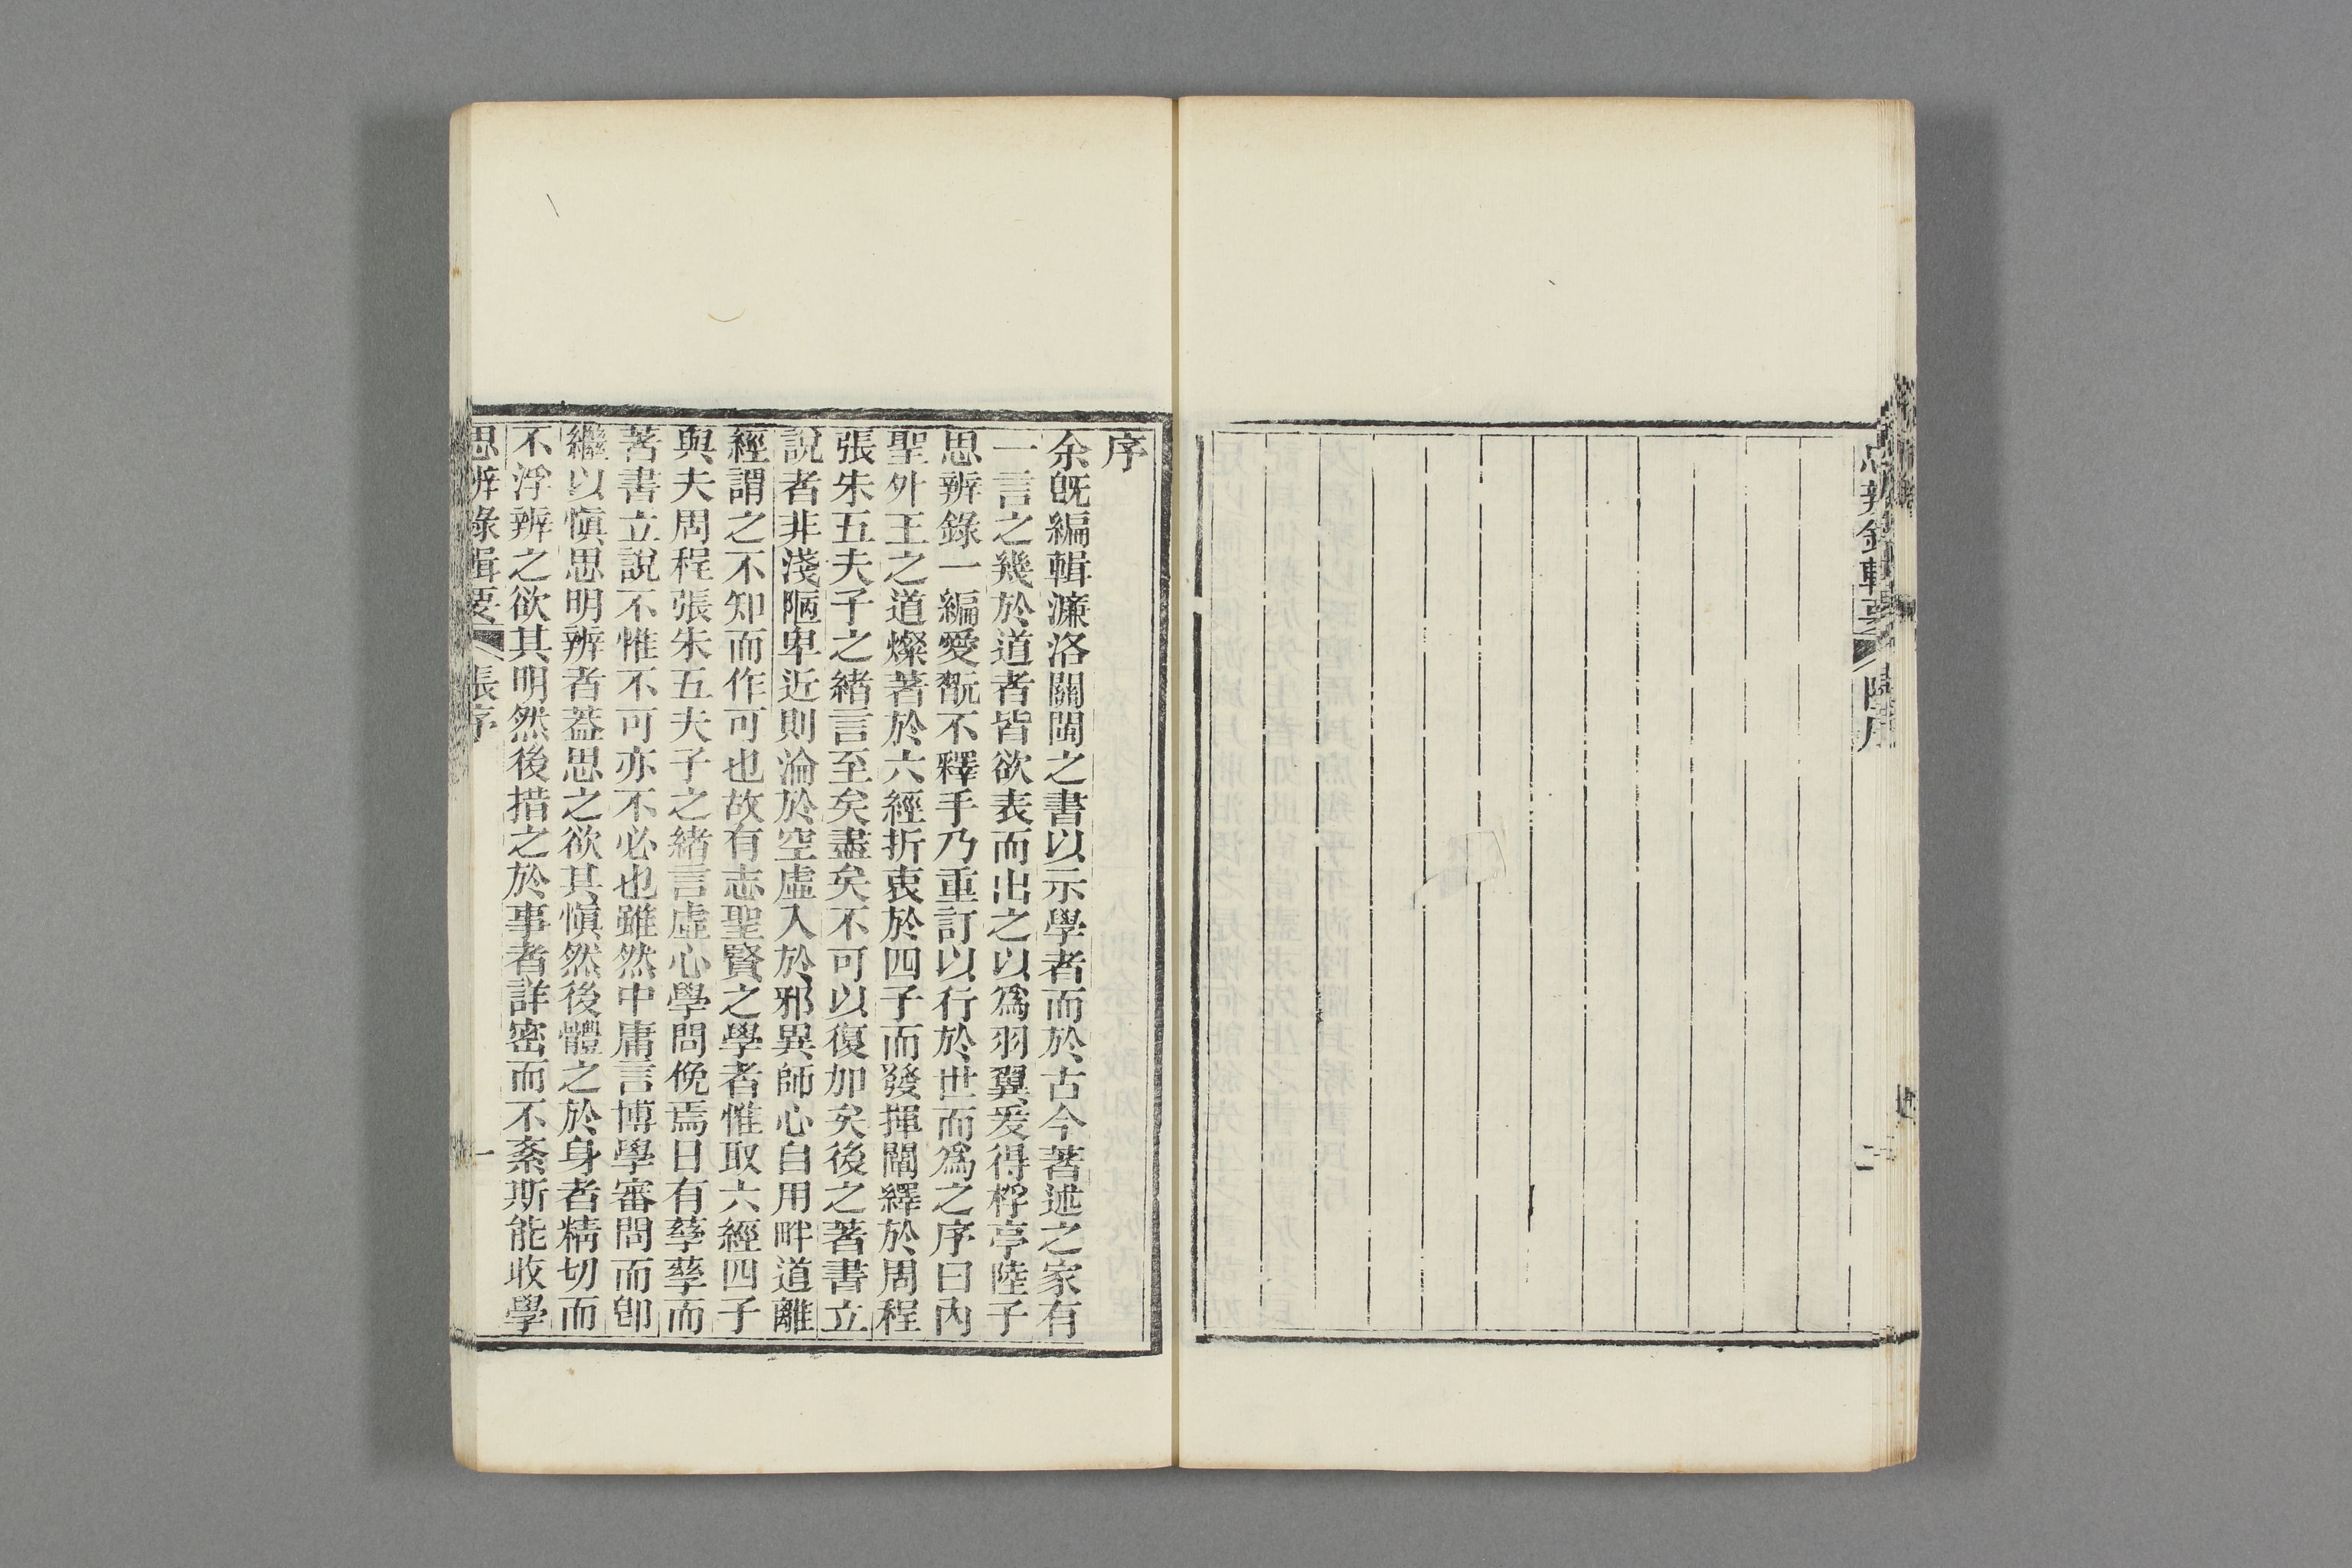 思辨錄輯要
陸序
二
序
余旣編輯濂洛關閩之書以示學者而於古今著述之家有
一言之幾於道者皆欲表而出之以爲羽翼爰得桴亭陸子
思辨錄一編愛翫不釋手乃重訂以行於世而爲之序曰內
聖外王之道燦著於六經折衷於四子而發揮闡繹於周程
張朱五夫子之緒言至矣盡矣不可以復加矣後之著書立
說者非淺陋卑近則淪於空虛入於邪異師心自用畔道離
經謂之不知而作可也故有志聖賢之學者惟取六經四子
與夫周程張朱五夫子之緒言虛心學問俛焉日有孳孳而
著書立說不惟不可亦不必也雖然中庸言博學審問而卽
繼以愼思明辨者葢思之欲其愼然後體之於身者精切而
不浮辨之欲其明然後措之於事者詳密而不紊斯能收學
思辨錄輯要
張序
一